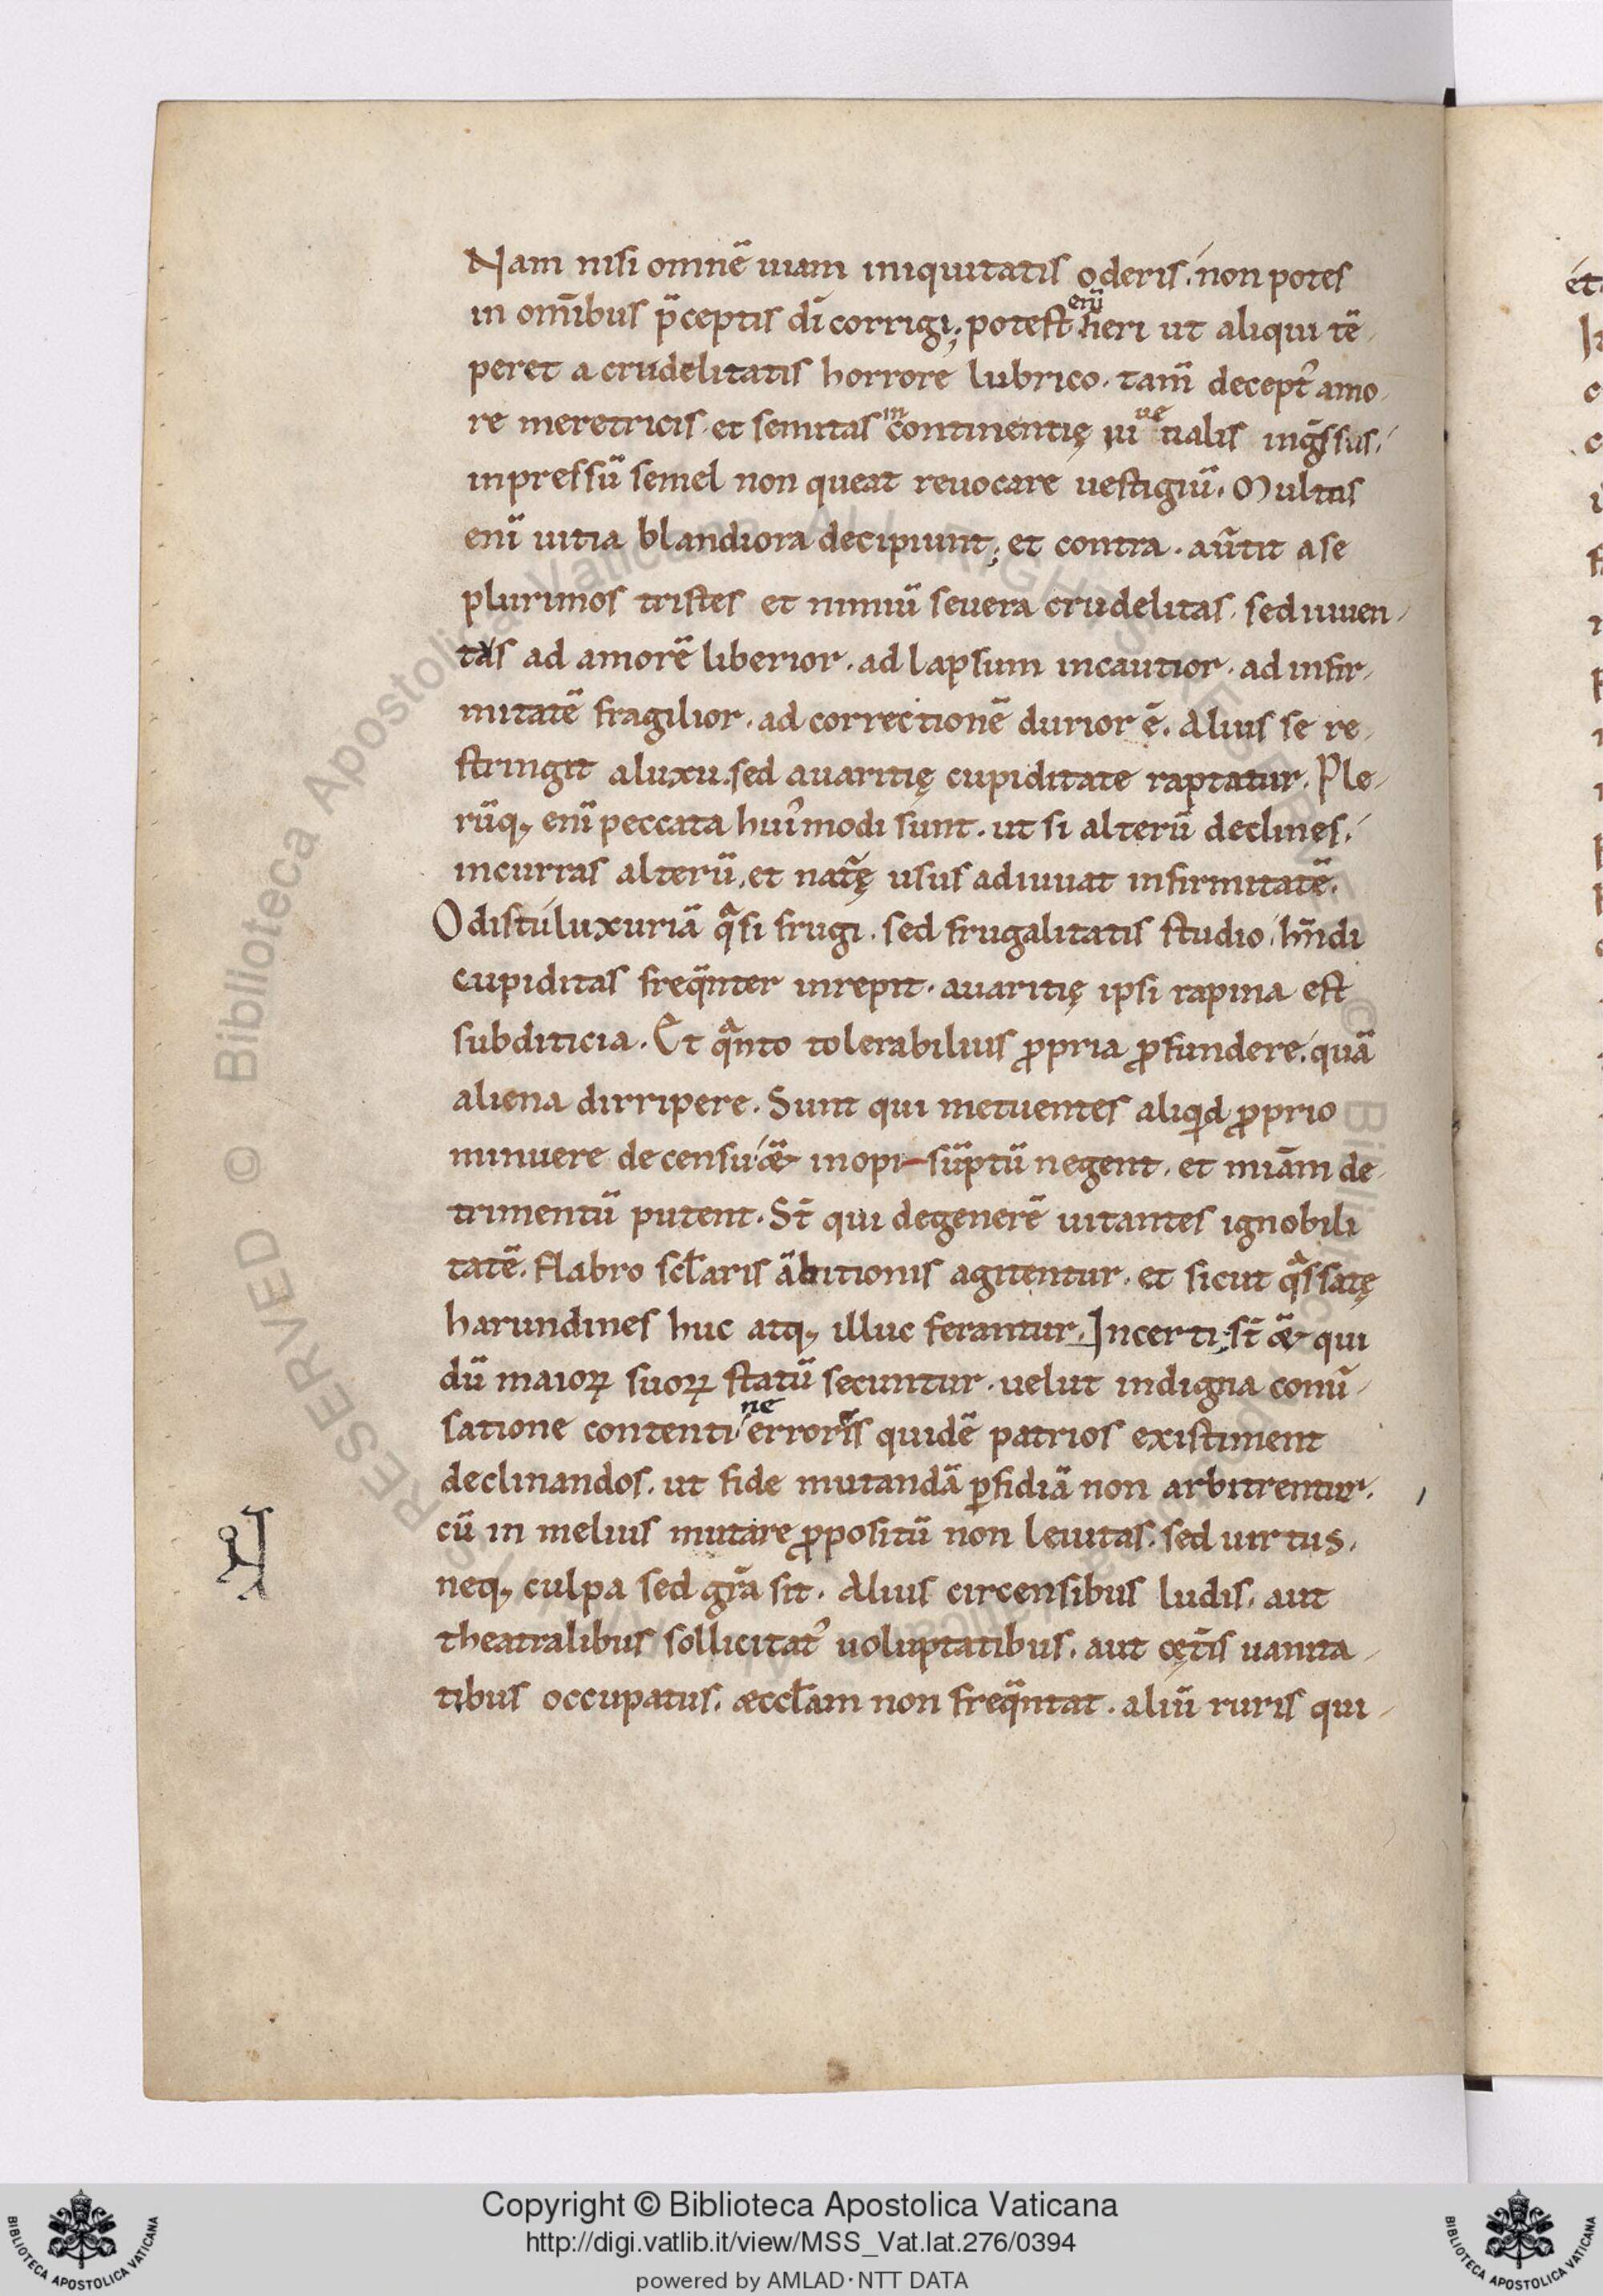 Nam nisi omnē uiam iniquitatis oderis. non potes
in om̄ibus p̄ceptis dī corrigi; potest enī fieri ut aliqui tē
peret a crudelitatis horrore lubrico. tam̄ decept᾽ amo
re meretricis et semitas incontinentię iuuetialis ing̃ssus.
inpressū semel non queat reuocare uestigiū. Multis
enī uitia blandiora decipiunt; et contra. aũtit a se
plurimos tristes et nimiū seuera crudelitas. sed iuuen
tas ad amorē liberior. ad lapsum incautior. ad infir
mitatē fragilior. ad correctionē durior ē. Alius se re
stringit a luxu. sed auaritię cupiditate raptatur. Ple
rūq; enī peccata hui᾽modi sunt. ut si alterū declines.
incurras alterū. et nat̃ę usus adiuuat infirmitatē.
Odistu luxuriā qᵃsi frugi. sed frugalitatis studio hñdi
cupiditas freq̄nter inrepit. auaritię ipsi rapina est
subditicia. Et qᵃnto tolerabilius ꝓpria ꝓfundere. quā
aliena dirripere. Sunt qui metuentes aliqͥd ꝓprio
minuere de censu æ̃ inopi sūptū negent. et miā̄m de
trimentū putent. St̄ qui degenerē uitantes ignobili
tatē. flabro scl̄aris ābitionis agitentur. et sicut qᵃssatę
harundines huc atq; illuc ferantur. Incerti st̄ æ̃ qui
dū maioꝝ suoꝝ statū secuntur. uelut indigna conū
satione contenti ne erroris quidē patrios existiment
declinandos. ut fide mutandā ꝑfidiā non arbitrentur.
cū in melius mutare ꝓpositū non leuitas. sed uirtus.
neq; culpa sed gr̄a sit. Alius circensibus ludis. aut
theatralibus sollicitat᾽ uoluptatibus. aut cęt̄is uanita
tibus occupatus. æccl̄am non freq̄ntat. aliū ruris qui
© Biblioteca Apostolica Vaticana ALL RIGHTS RESERVED
Copyright © Biblioteca Apostolica Vaticana
http://digi.vatlib.it/view/MSS_Vat.lat.276/0394
powered by AMLAD·NTT DATA
BIBLIOTECA APOSTOLICA VATICANA
BIBLIOTECA APOSTOLICA VATICANA